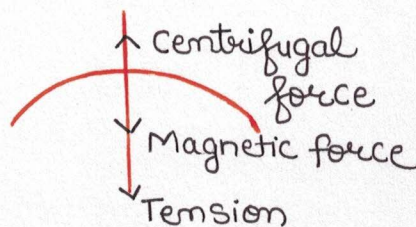 Centrifugal
force
Magnetic force
Tension